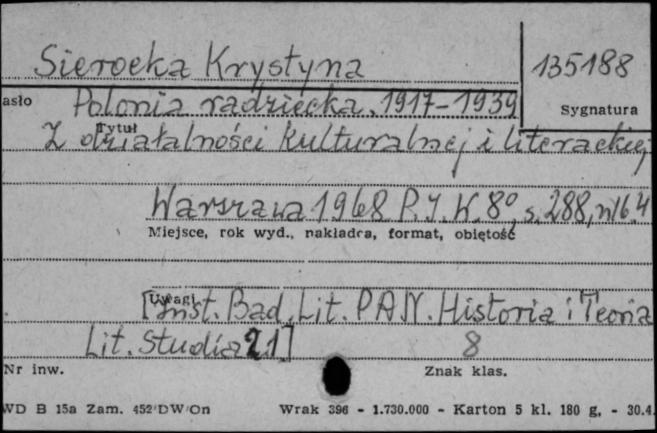 Sierocka Krystyna
135188
asło
Polonia radziecka. 1917-1939
Sygnatura
Tytuł
Z działalności kulturalnej i literackiej
Warszawa 1968 P.I.W. 8°, s. 288, nlb. 4
Miejsce, rok wyd., nakładca, format, obiętość
Uwagi
[Inst. Bad. Lit. PAN. Historia i Teoria
Lit. Studia 21]
8
Nr inw.
Znak klas.
WD B 15a Zam. 452/DW/On
Wrak 396 - 1.730.000 - Karton 5 kl. 180 g, - 30.4.